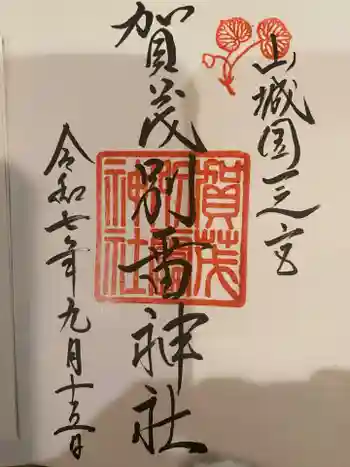 山城国一之宮
賀茂別雷神社
令和七年九月十五日
賀茂別雷神社